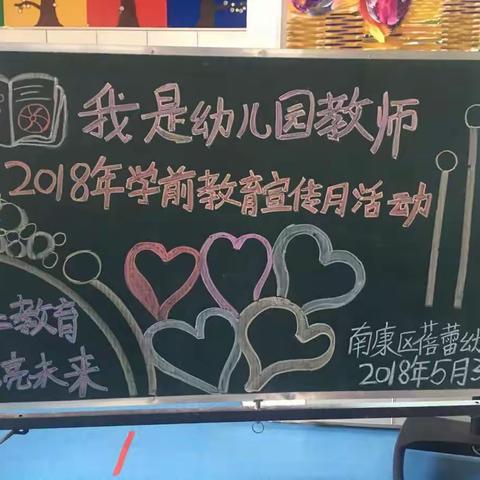 我是幼儿园教师
2018年学前教育宣传月活动
教育
亮未来
南康区蓓蕾幼
2018年5月3